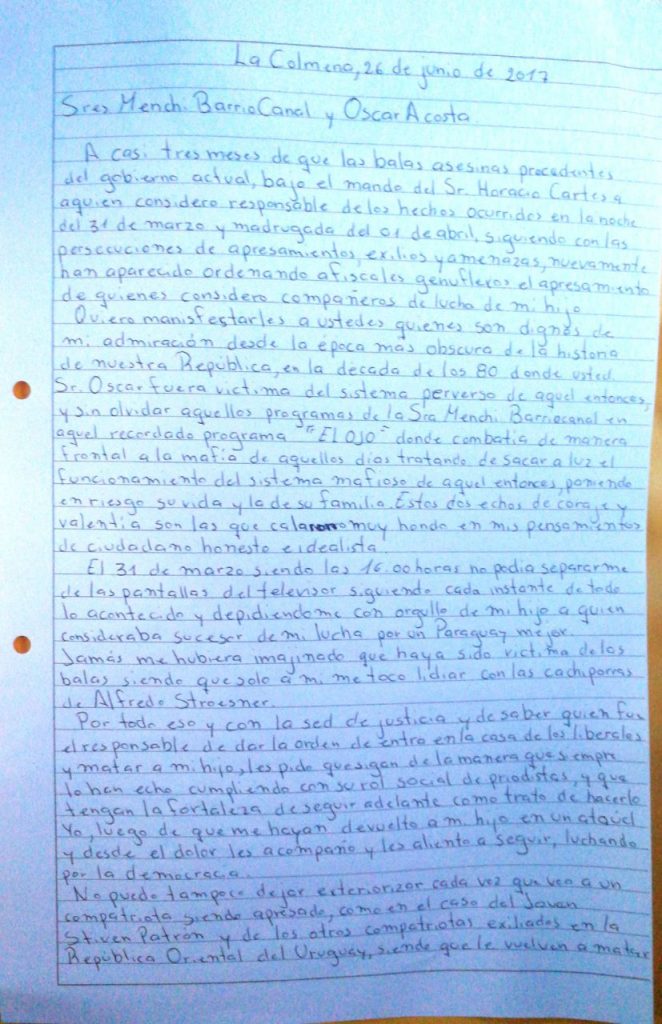 La Colmena, 26 de junio de 2017
Sres Menchi BarrioCanal y Oscar Acosta
A casi tres meses de que las balas asesinas procedentes
del gobierno actual, bajo el mando del Sr. Horacio Cartes a
aquien considero responsable de los hechos ocurridos en la noche
del 31 de marzo y madrugada del 01 de abril, siguiendo con las
persecuciones de apresamientos, exilios y amenazas, nuevamente
han aparecido ordenando a fiscales genuflexos el apresamiento
de quienes considero compañeros de lucha de mi hijo
Quiero manisfestarles a ustedes quienes son dignos de
mi admiración desde la época más obscura de la historia
de nuestra República, en la decada de los 80 donde usted
Sr. Oscar fuera victima del sistema perverso de aquel entonces,
y sin olvidar aquellos programas de la Sra Menchi Barriocanal en
aquel recordado programa "El OJO" donde combatia de manera
frontal a la mafia de aquellos dias tratando de sacar a luz el
funcionamiento del sistema mafioso de aquel entonces, poniendo
en riesgo su vida y la de su familia. Estos dos echos de coraje y
valentia son las que calaron muy hondo en mis pensamientos
de ciudadano honesto e idealista.
El 31 de marzo siendo las 16.00 horas no podia separarme
de las pantallas del televisor siguiendo cada instante de todo
lo acontecido y depidiendome con orgullo de mi hijo a quien
consideraba sucesor de mi lucha por un Paraguay mejor.
Jamás me hubiera imajinado que haya sido victima de las
balas siendo que solo a mi me toco lidiar con las cachiporras
de Alfredo Stroesner.
Por todo eso y con la sed de justicia y de saber quien fue
el responsable de dar la orden de entro en la casa de los liberales
y matar a mi hijo, les pido que sigan de la manera que siempre
lo han echo cumpliendo con su rol social de priodistas, y que
tengan la fortaleza de seguir adelante como trato de hacerlo
Yo, luego de que me hayan devuelto a mi hijo en un ataúd
y desde el dolor les acompaño y les aliento a seguir, luchando
por la democracia.
No puedo tampoco dejar exteriorizar cada vez que veo a un
compatriota siendo apresado, como en el caso del Joven
Stiven Patrón y de los otros compatriotas exiliados en la
República Oriental del Uruguay, siendo que le vuelven a matar